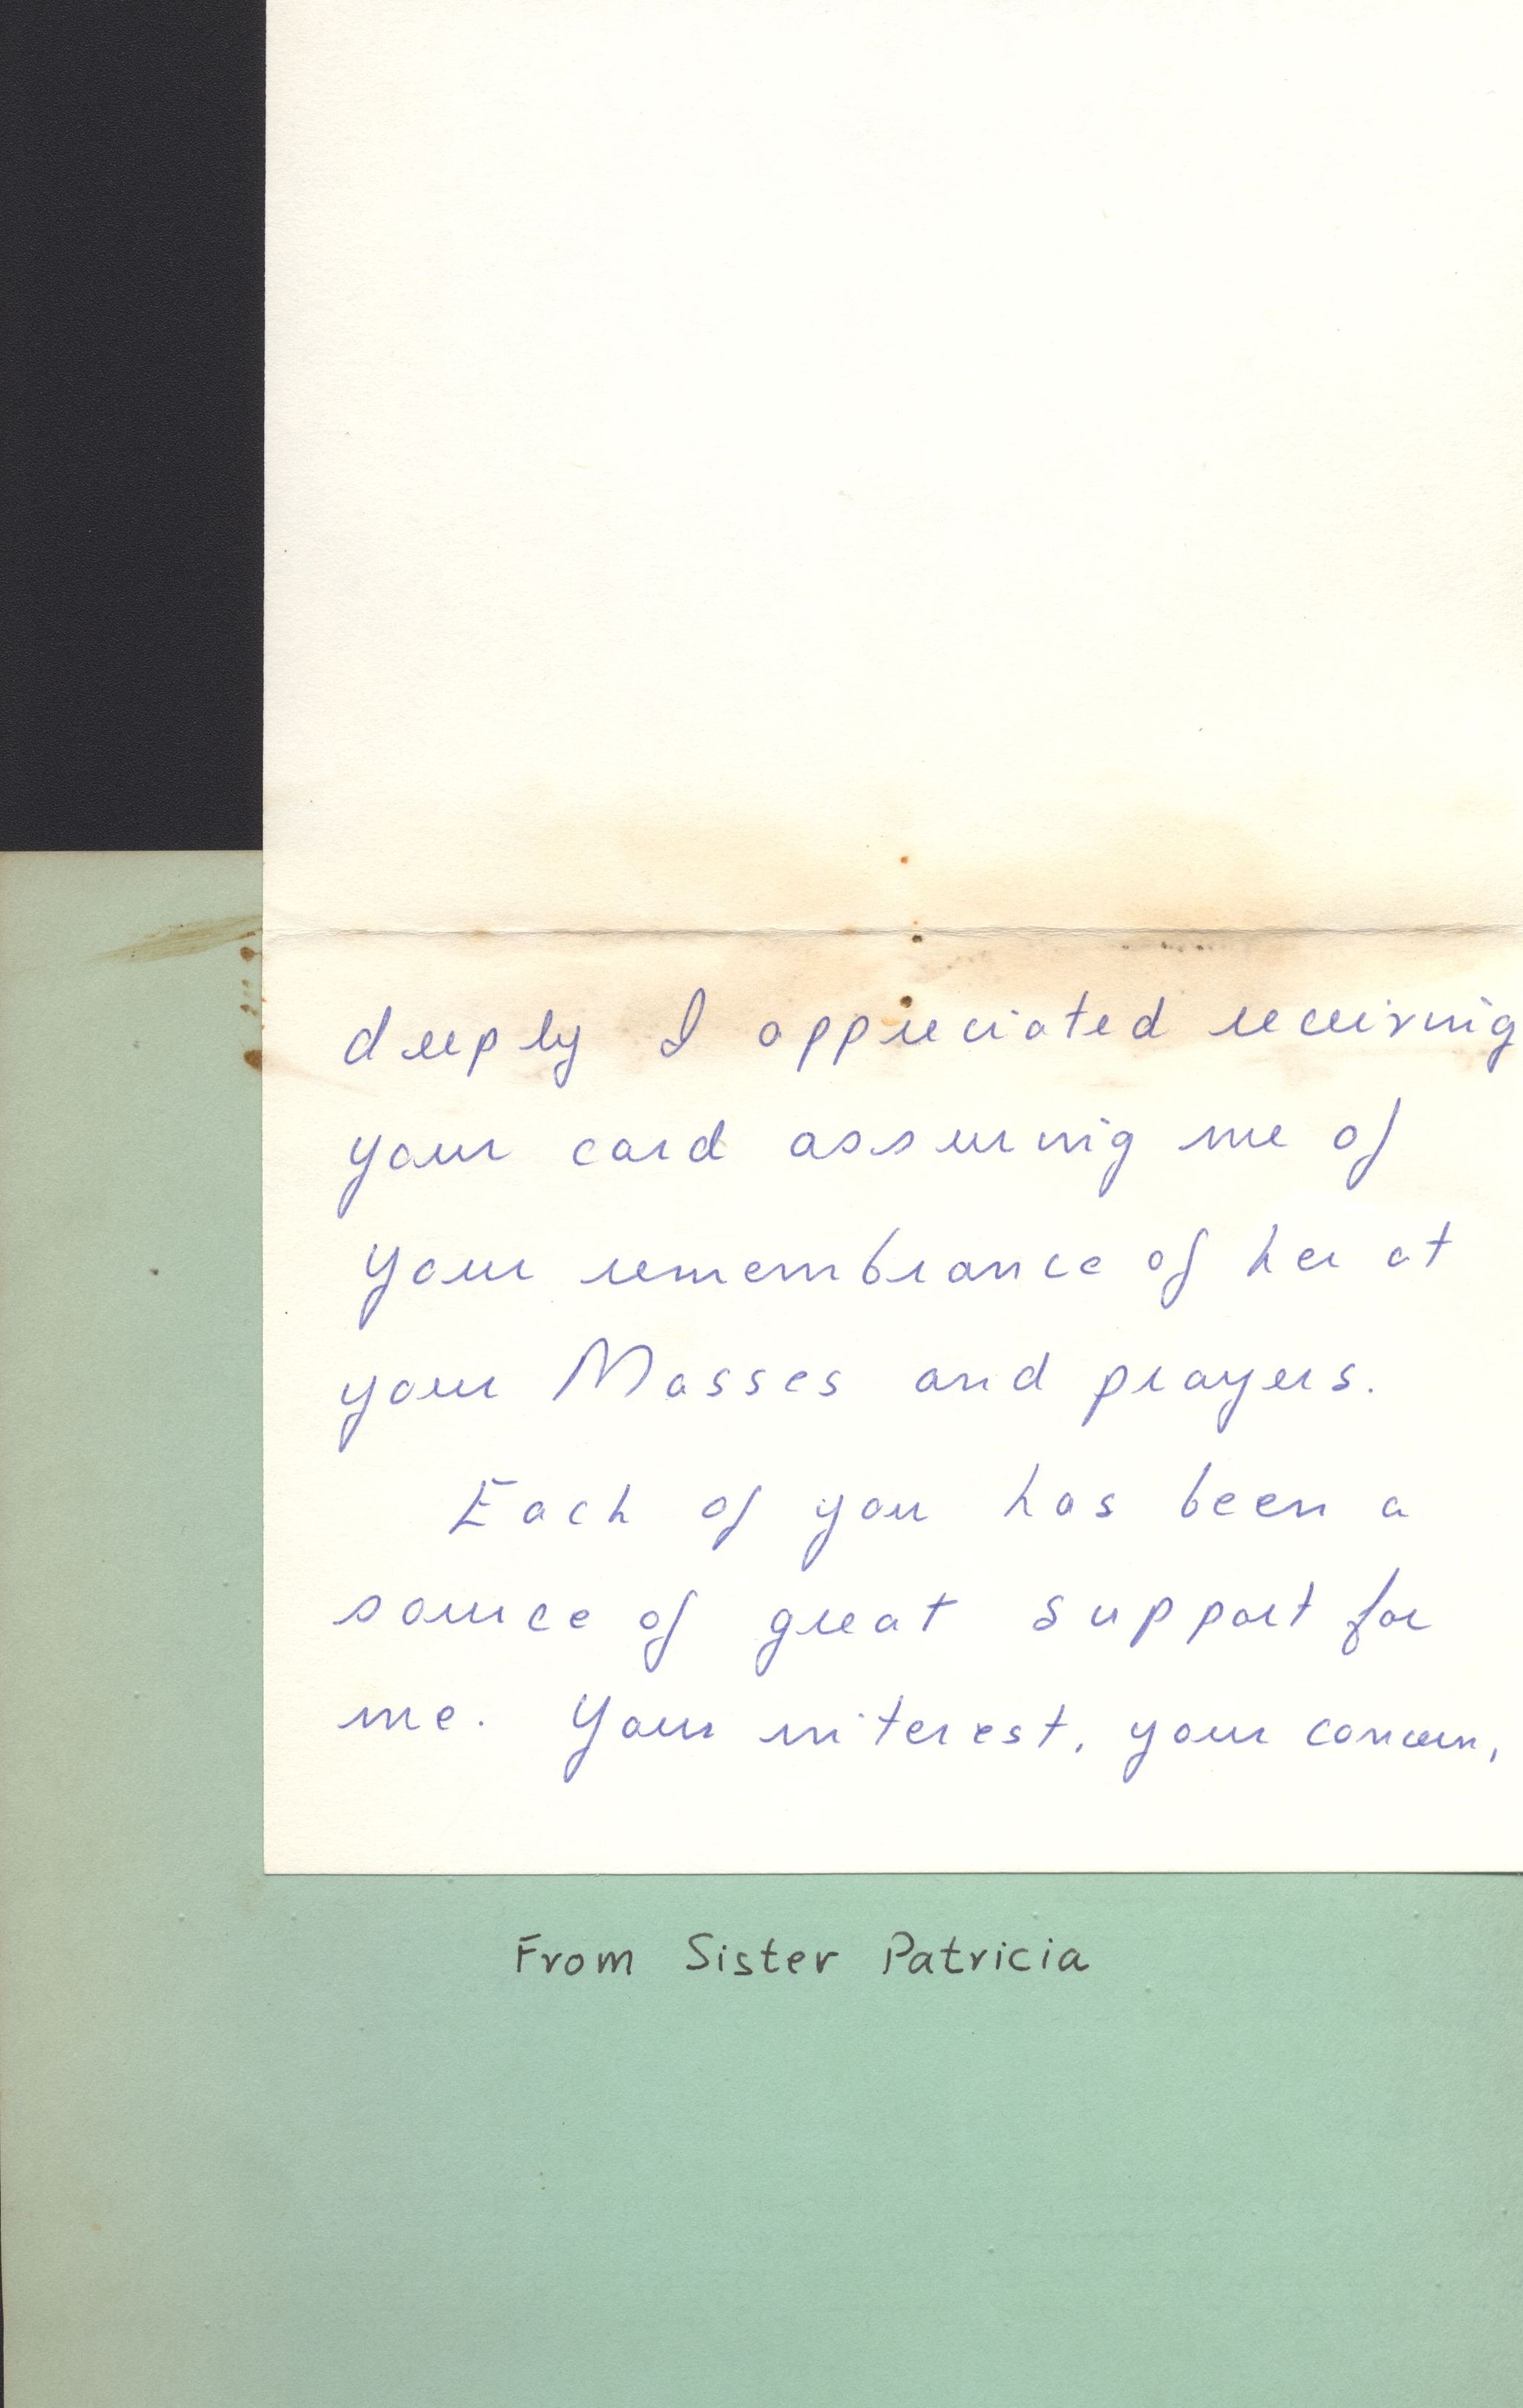 deeply I appreciated receiving
your card assuring me of
your remembrance of her at
your Masses and prayers.
Each of you has been a
source of great support for
me. Your interest, your concern,
From Sister Patricia